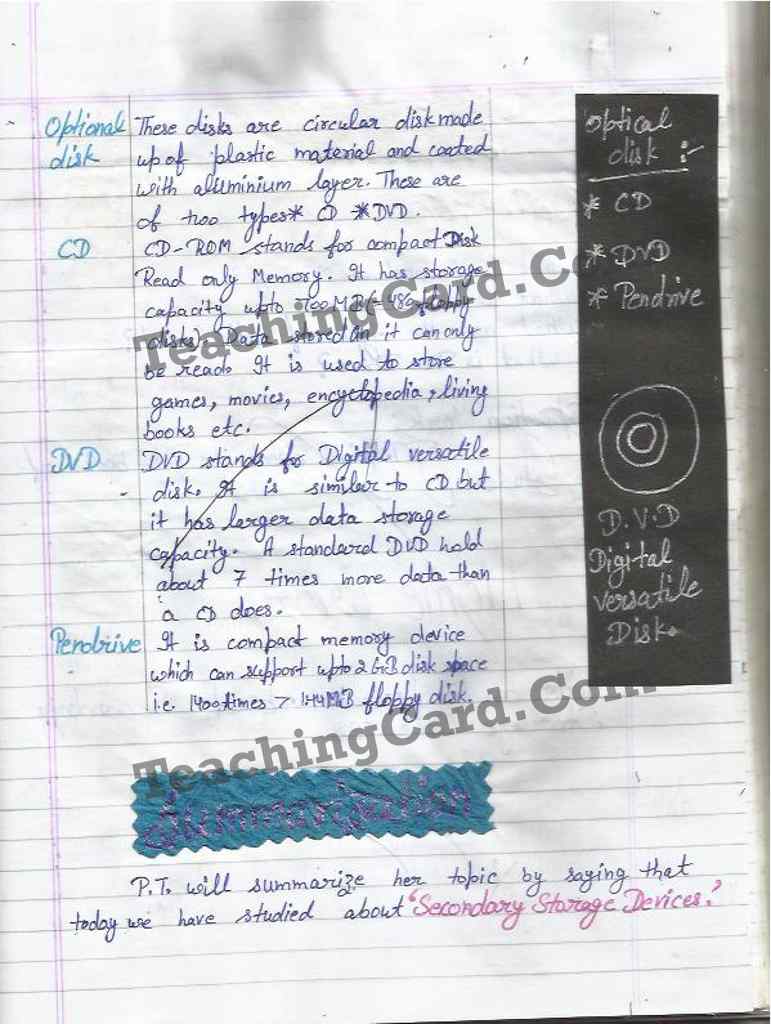 Optional
disk
These disks are circular disk made
up of plastic material and coated
with aluminium layer. These are
of two types* CD *DVD.
CD
CD-ROM stands for compact Disk
Read only Memory. It has storage
capacity upto MB floppy
disks) Data stored in it can only
be read. It is used to store
games, movies, encyclopedia, living
books etc.
DVD
DVD stands for Digital versatile
disk. It is similar to CD but
it has larger data storage
capacity. A standard DVD hold
about 7 times more data than
a CD does.
Pendrive
It is compact memory device
which can support upto 2 GB disk space
i.e. 1400 times > 1.44 MB floppy disk.
Optical
disk :-
* CD
* DVD
* Pendrive
D.V.D
Digital
versatile
Disk.
TeachingCard.Com
TeachingCard.Com
Summarization
P.T. will summarize her topic by saying that
today we have studied about 'Secondary Storage Devices.'